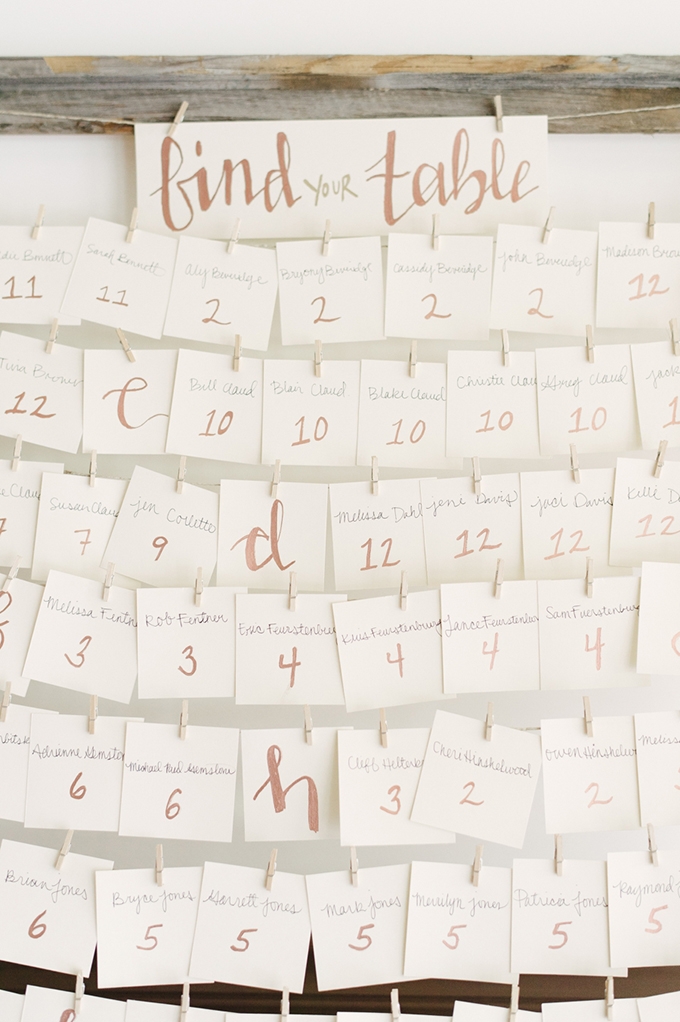 find YOUR table
Bennett
11
Sarah Bennett
11
Aly Beveridge
2
Bryony Beveridge
2
Cassidy Beveridge
2
John Beveridge
2
Madison Brown
12
Tina Brown
12
c
Bill Claud
10
Blair Claud
10
Blake Claud
10
Christie Claud
10
Greg Claud
10
Jack
1
Clau
7
Susan Claud
7
Jen Collette
9
d
Melissa Dahl
12
Jeni Davis
12
Jaci Davis
12
Kelli Da
12
Melissa Fentner
3
Rob Fentner
3
Eric Feurstenburg
4
Kris Feurstenburg
4
Lance Feurstenburg
4
Sam Fuerstenburg
4
Adrianne Gemstone
6
Michael Paul Gemstone
6
h
Cliff Helterbr
3
Cheri Hinshelwood
2
Owen Hinshelwood
2
Melissa
Brian Jones
6
Bryce Jones
5
Garrett Jones
5
Mark Jones
5
Merrilyn Jones
5
Patricia Jones
5
Raymond J
5